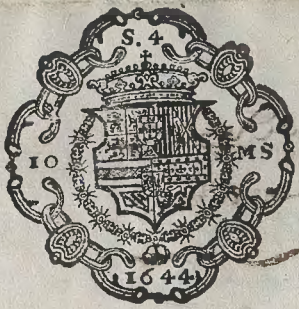 S. 4.
10 MS
1644